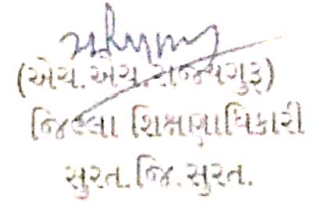 (એચ.એચ.રાજ્યગુરૂ)
જિલ્લા શિક્ષણાધિકારી
સુરત.જિ.સુરત.